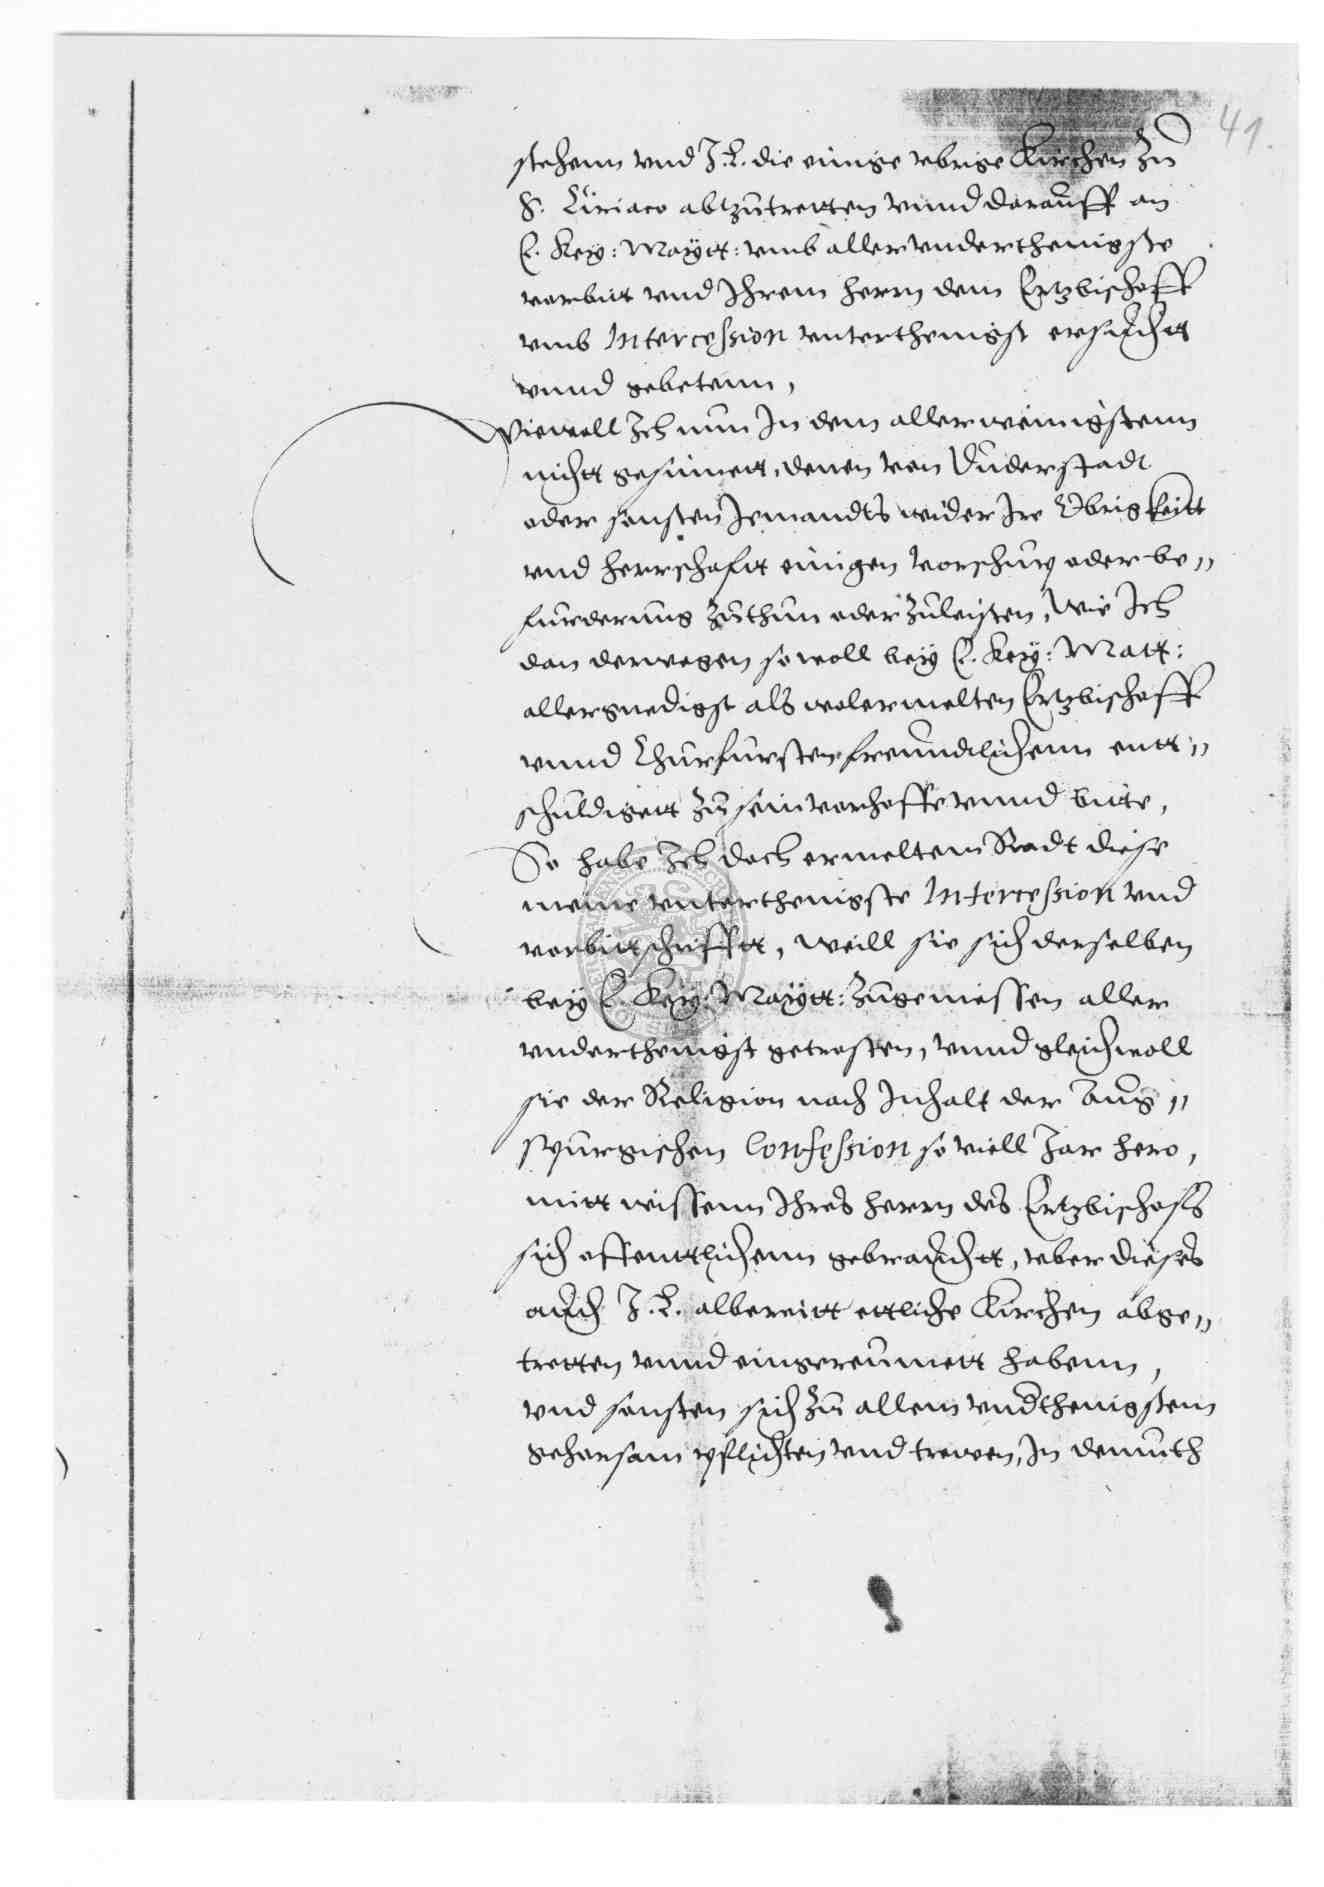 41.
stehenn vnd J. L. die einige vbrige Kirchen zu
S. Ciriaco abtzutretten vnnd darauff an
E. Key: Maÿtt: vmb aller vnderthenigste
vorbitt vnd Ihrem herrn dem Ertzbischoff
vmb Intercession vnterthenigst ersuchtt
vnnd gebetenn,
Wiewoll Ich nun In dem allerwenigstenn
nichtt gesinnett, denen von Duderstadt
oder sonsten Jemandts wider Ire Obrigkeitt
vnd herrschafft einigen vorschub oder be„
furderung zuthun oder zuleisten, Wie Ich
dan derwegen so woll beÿ E. Keÿ: Matt:
allergnedigst als wolermelten Ertzbischoff
vnnd Churfursten freundtlichenn entt„
schuldigett zu sein verhoffe vnnd bitte,
So habe Ich doch ermeltem Radt diese
meine vnterthenigste Intercession vnd
vorbittschrifftt, Weill sie sich derselben
beÿ E. Keÿ: Maÿtt: zugeniessen aller
vnderthenigst getrosten, vnnd gleichwoll
sie der Religion nach Inhalt der Aug„
spurgischen Confession so viell Jar hero,
mitt wissenn Ihres herrn des Ertzbischofs
sich offenttlichenn gebrauchtt, vber dieses
auch J. L. albereitt ettliche Kirchen abge„
tretten vnnd eingereumett habenn,
vnd sonsten sich zu allem vnderthenigstem
gehorsam pflichten vnd trewen, In demuth